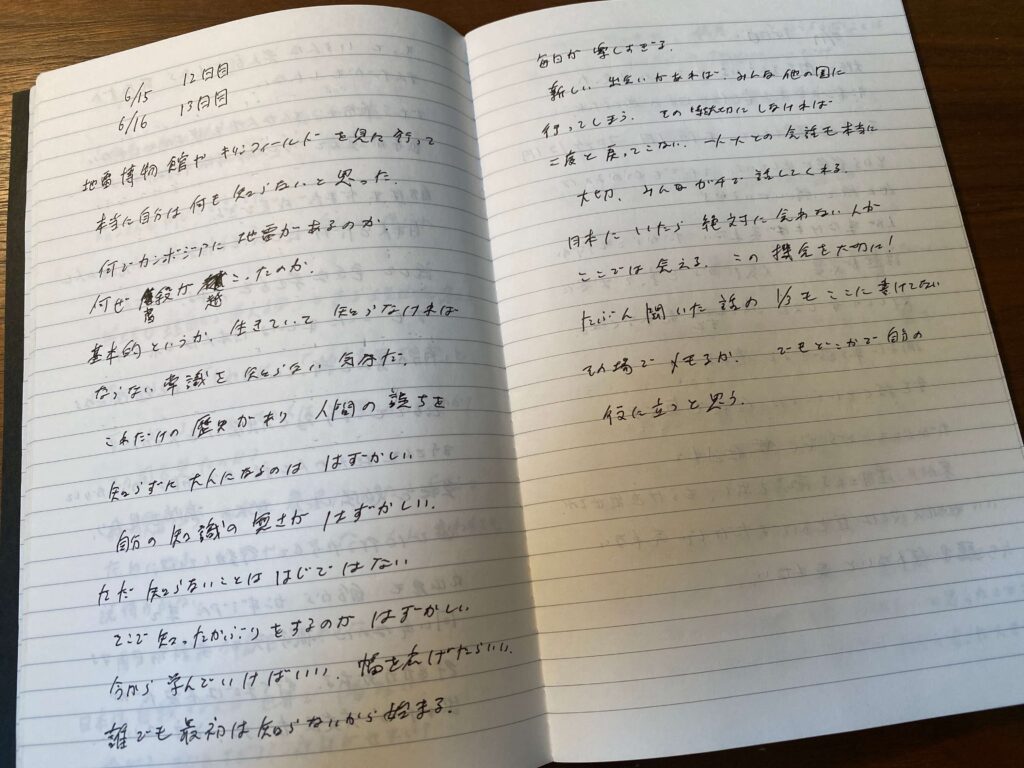 6/15 12日目
6/16 13日目
地雷博物館や キリンフィールド を見に行って
本当に自分は何も知らないと思った.
何でカンボジアに地雷があるのか.
何ぜ が こったのか.
基本的というか、生きていて 知らなければ
ならない常識を知らない気分だ.
これだけの歴史があり 人間の誤ちを
知らずに大人になるのは はずかしい.
自分の知識の さが はずかしい.
ただ 知らないことは はじではない
そこで知ったかぶりをするのが はずかしい
今から 学んでいけばいい. 幅を広げたらいい.
誰でも最初は知らないから始まる.
毎日が 楽しすぎる.
新しい 出会いがあれば、みんな他の国に
行ってしまう. その 大切にしなければ
二度と戻ってこない. 一人一人との会話も本当に
大切、みんなガチで話してくれる.
日本にいたら絶対に会わない人が
ここでは会える. この機会を大切に!
たぶん聞いた話の 1/3もここに書けてない
その場でメモるか. でもどこかで自分の
役に立つと思う.